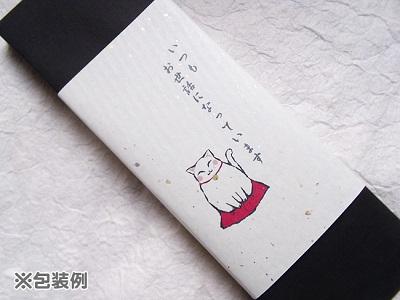 いつも
お世話になっています
※包装例